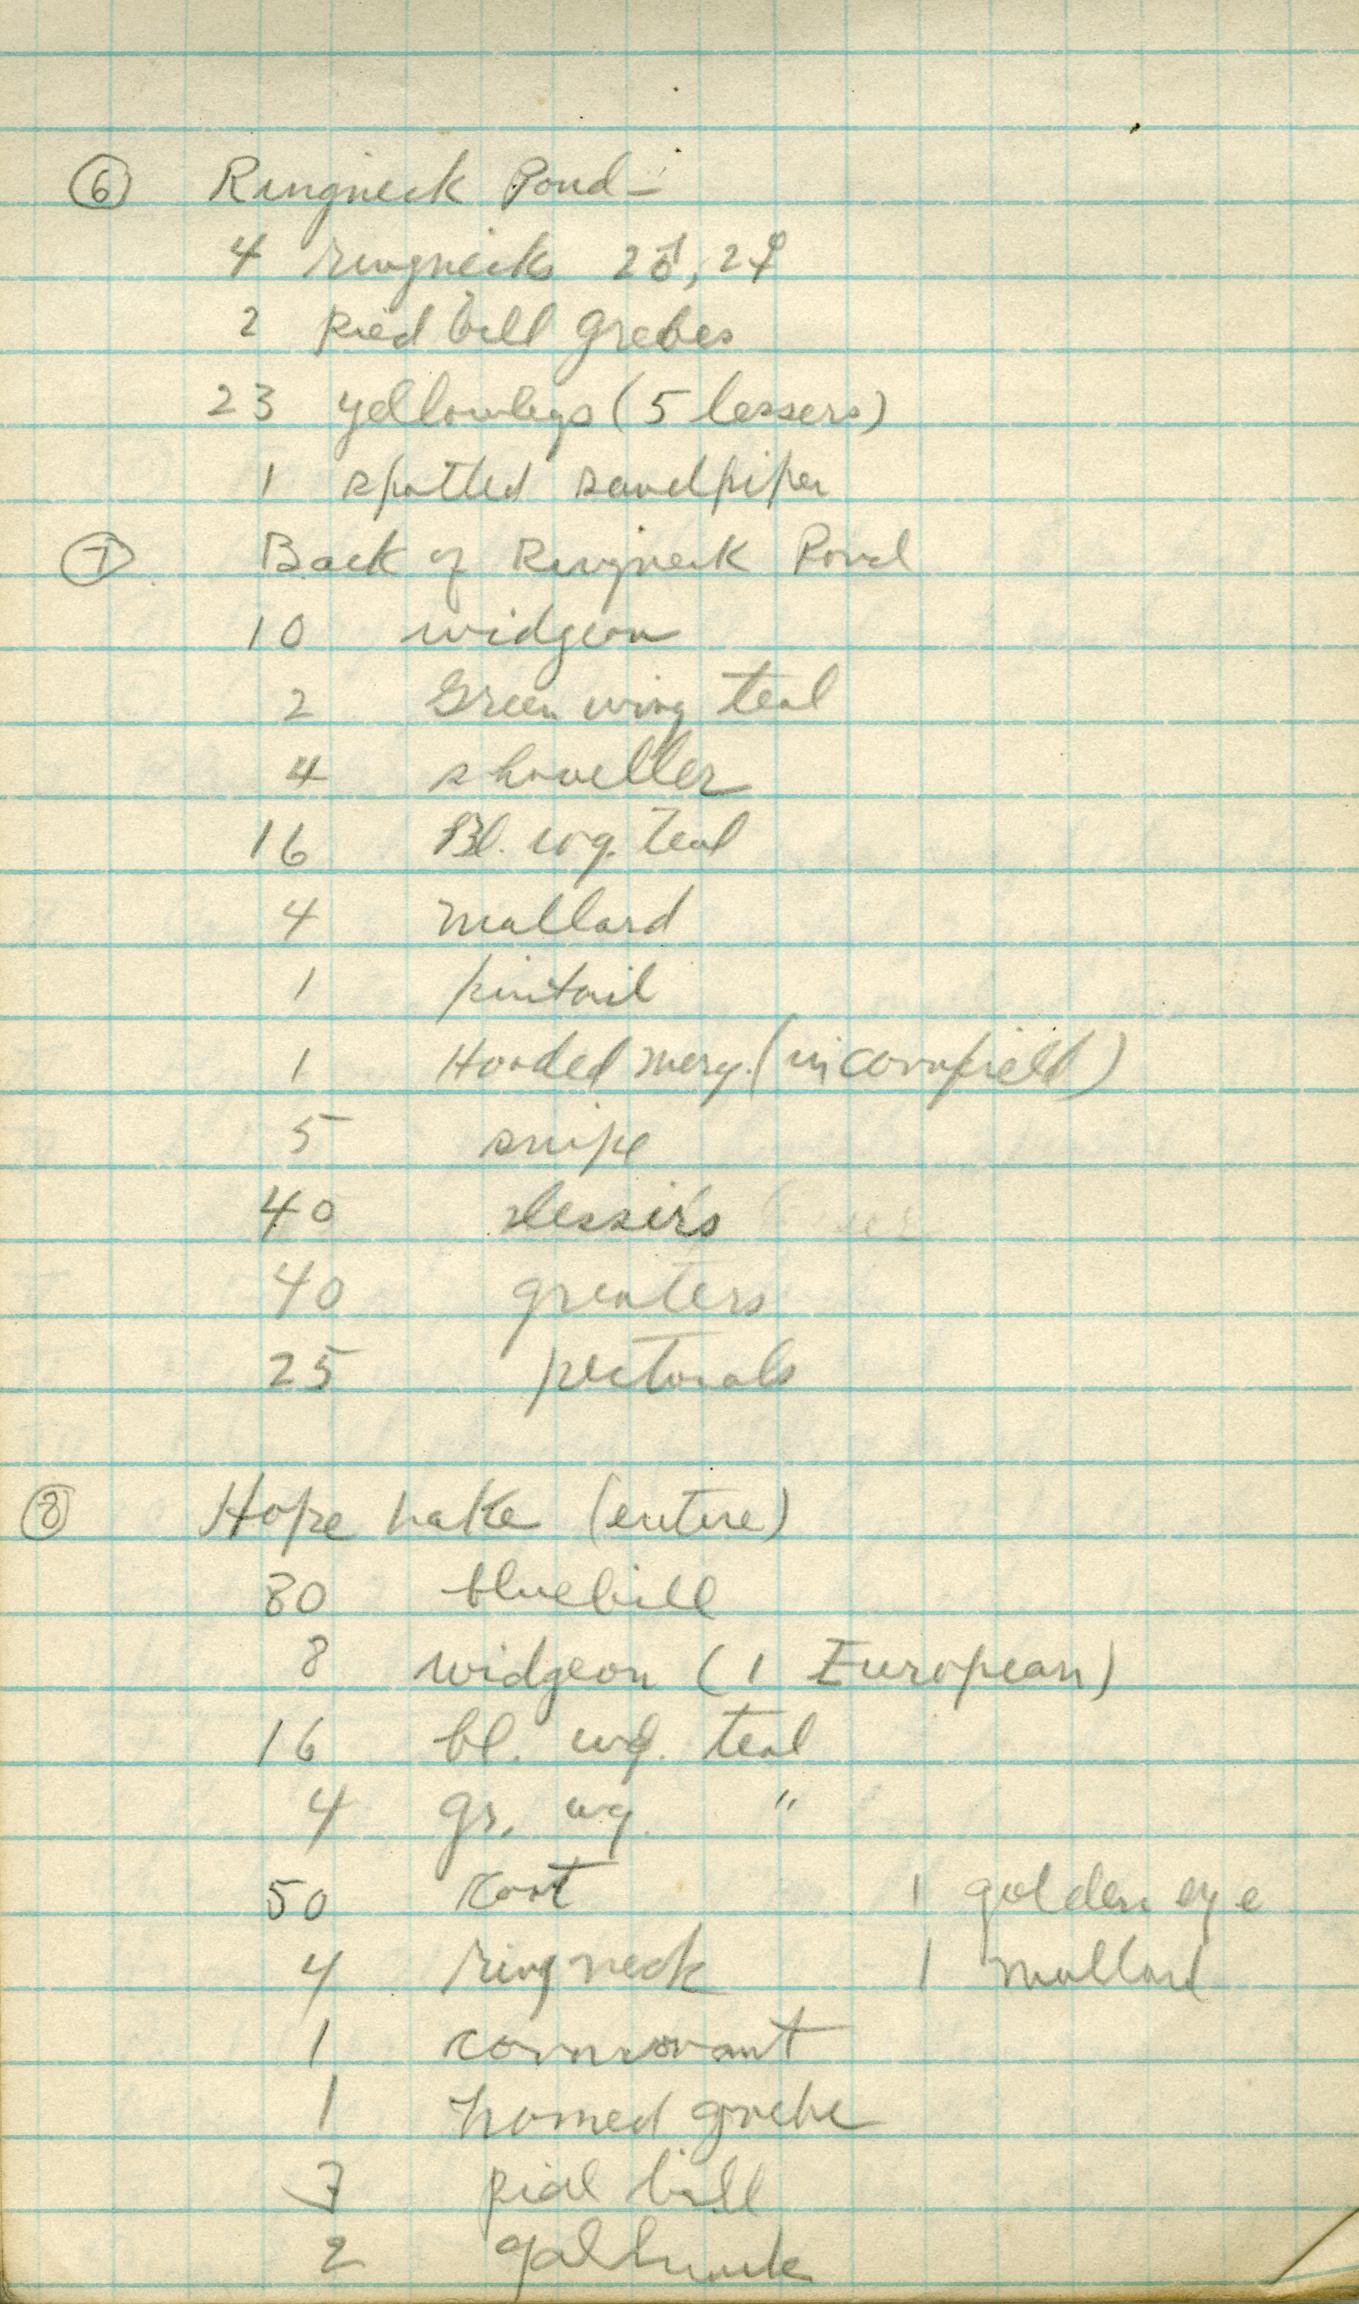 6 Ringneck Pond -
4 ringnecks 2♂, 2♀
2 Pied bill Grebes
23 yellowlegs (5 lessers)
1 spotted sandpiper
7 Back of Ringneck Pond
10 widgeon
2 Green wing teal
4 shoveller
16 Bl. wg. Teal
4 mallard
1 pintail
1 Hooded merg. (in cornfield)
5 snipe
40 lessers
40 greaters
25 pectorals
8 Hope Lake (entire)
80 bluebill
8 widgeon (1 European)
16 bl. wg. teal
4 gr. wg. "
50 coot 1 golden eye
4 ring neck 1 mallard
1 cormorant
1 horned grebe
pied bill
2